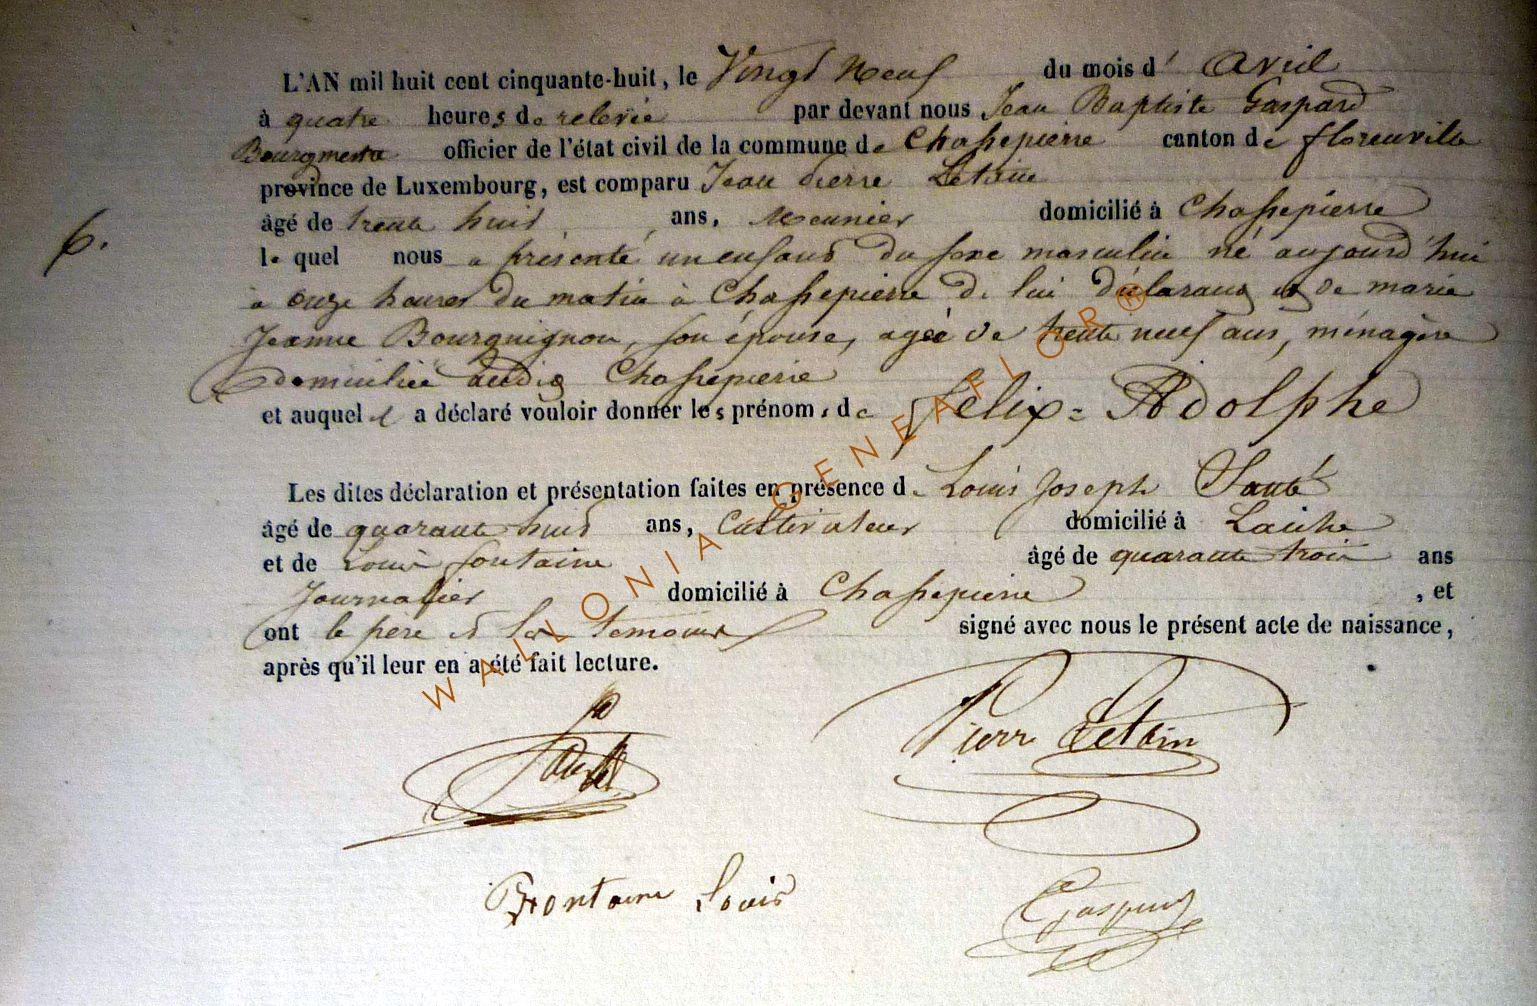 L'AN mil huit cent cinquante-huit, le Vingt Neuf du mois d' Avril
à quatre heures de relevée par devant nous Jean Baptiste Gaspard
Bourgmestre officier de l'état civil de la commune de Chassepierre canton de florenville
province de Luxembourg, est comparu Jean Pierre Letain
6.
âgé de trente huit ans, Meunier domicilié à Chassepierre
le quel nous a présenté un enfant du sexe masculin né aujourd'hui
à onze heures du matin à Chassepierre de lui déclarant et de marie
Jeanne Bourguignon, son épouse, agée de trente neuf ans, ménagère
domiciliée audit Chassepierre
et auquel il a déclaré vouloir donner les prénoms de Félix = Adolphe
Les dites déclaration et présentation faites en présence de Louis Joseph Santé
âgé de quarante huit ans, Cultivateur domicilié à Laiche
et de Louis fontaine âgé de quarante trois ans
Journalier domicilié à Chassepierre , et
ont le père et les témoins signé avec nous le présent acte de naissance,
après qu'il leur en a été fait lecture.
WALLONIA GENEAFLOR®
Pierre Letain
Fontaine Louis
Gaspard